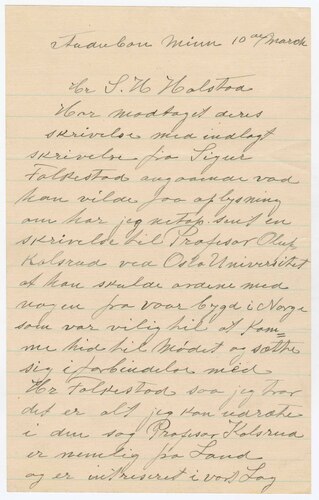 Audubon Minn 10de March
Hr S. H. Holstad
Har modtaget deres
skrivelse med indlagt
skrivelse fra Sigur
Folkestad angaaende vad
han vilde faa oplysning
om har jeg netop sent en
skrivelse til Profesor Oluf
Kolsrud ved Oslo Universitet
at han skulde ordene med
nogen fra voor bygd i Norge
som var vilig til at Kom=
me hid til Mødet og sætte
sig i forbindelse med
Hr Folkestad saa jeg tror
det er alt jeg kan udrætte
i den sag Profesor Kolsrud
er nemlig fra Land
og er intriseret i vort Lag